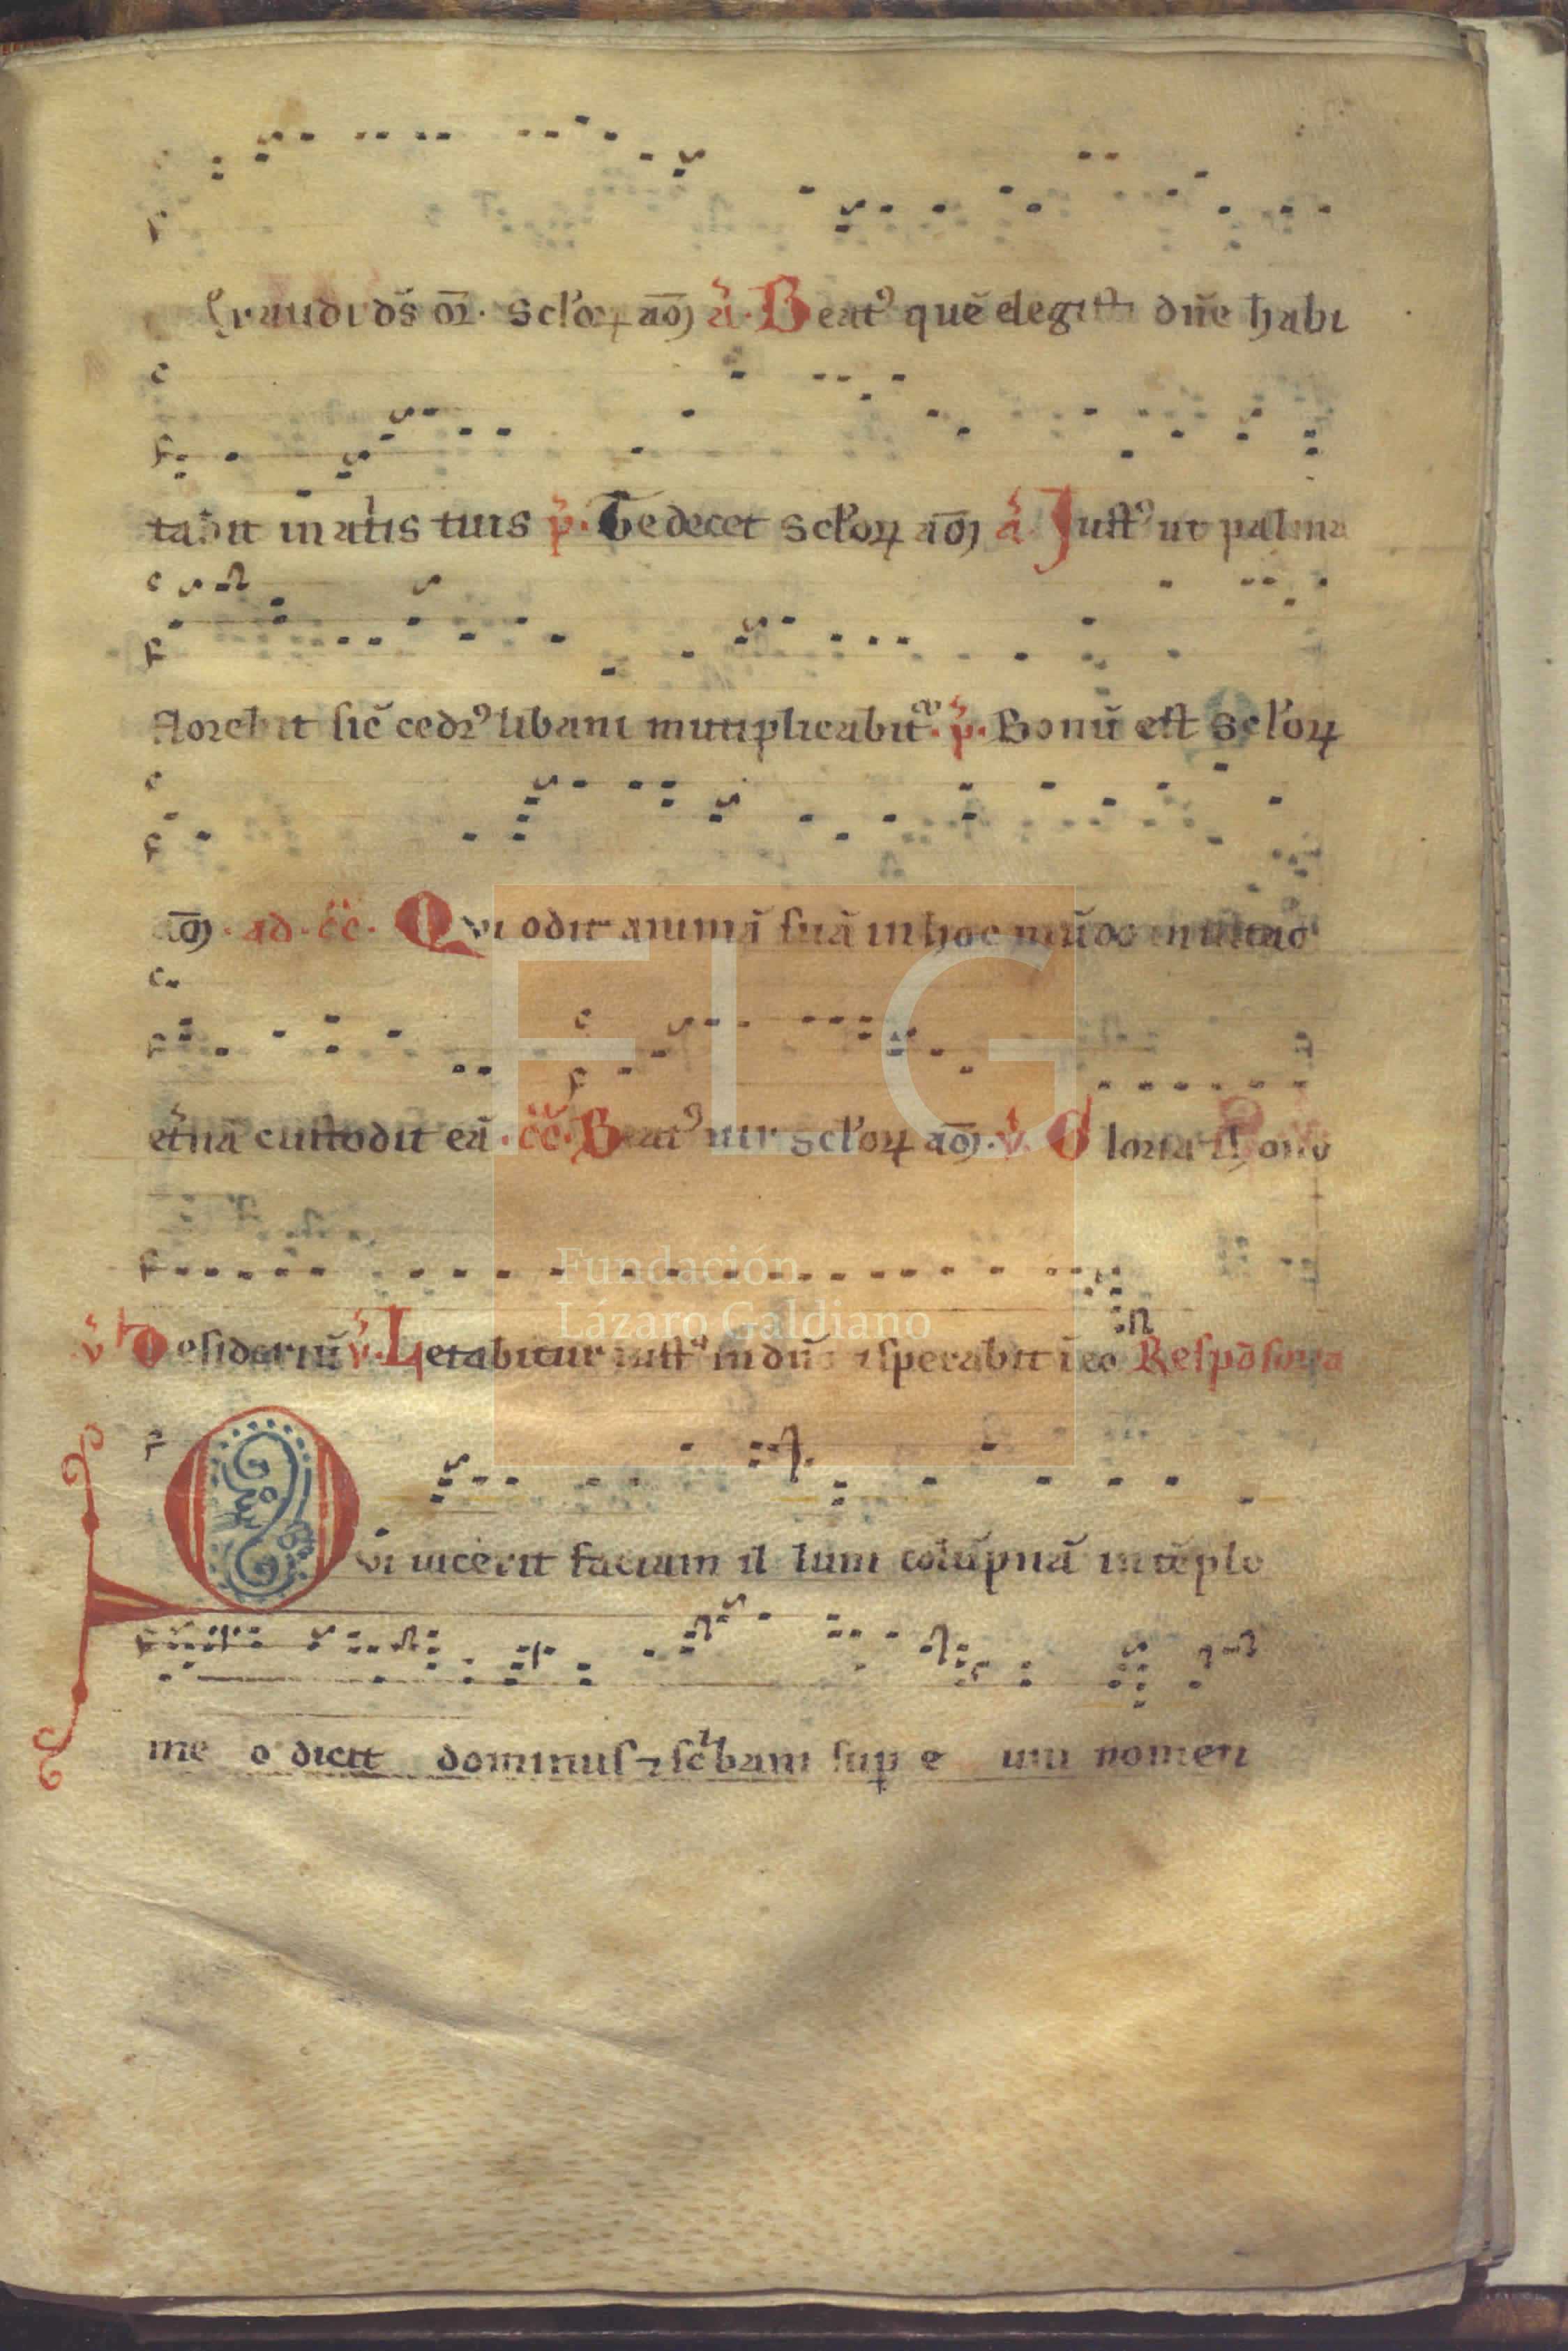 Exaudi ds̄ or̄. sclꝛoꝝ am̄ a᷒. Beatꝰ quē elegisti dn̄e habi
tabit in atris tuis p᷒. Te decet sclꝛoꝝ am̄ a᷒. Justꝰ ut palma
florebit sic̄ cedrꝰ libani mutiplicabit᷑. p᷒. Bonū est sclꝛoꝝ
am̄. ad. cc̄. Qui odit animā suā in hoc mūdo in
et̄nā custodit eā. cc̄. Beatꝰ uir sclꝛoꝝ am̄. v᷒. Gloria ⁊ hono
v᷒ Desideriū v᷒. Letabitur iustꝰ in dn̄o ⁊ sperabit ī eo Respōsoria
Qvi uicerit faciam il lum colūpnā in tēplo
me o dicit dominus ⁊ sc̍bam sup̱ e um nomen
Fundación
Lázaro Galdiano
FLG